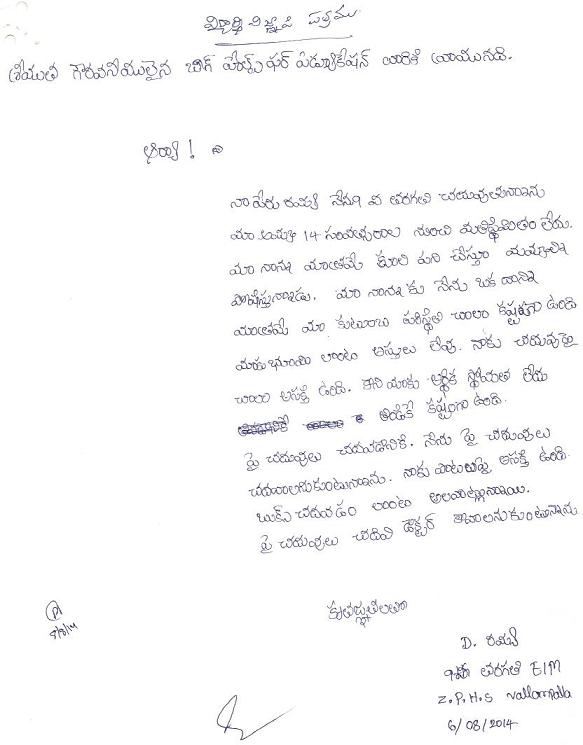 విద్యార్థి విజ్ఞాపన పత్రము
గౌరవనీయులైన బిగ్ హెల్ప్ ఫర్ ఎడ్యుకేషన్ వారికి వ్రాయునది.
ఆర్యా !
నా పేరు రమ్య నేను 9వ తరగతి చదువుతున్నాను
మా అమ్మకు 14 సంవత్సరాల నుంచి మతిస్థిమితం లేదు.
మా నాన్న మాత్రమే కూలి పని చేస్తూ మమ్మల్ని
పోషిస్తున్నాడు. మా నాన్న కు నేను ఒక దానిని
మాత్రమే మా కుటుంబ పరిస్థితి చాలా కష్టంగా ఉంది
మాకు భూమి లాంటి ఆస్తులు లేవు. నాకు చదువుపై
చాలా ఆసక్తి ఉంది. కాని మాకు ఆర్థిక స్తోమత లేదు
కష్టంగా ఉంది.
పై చదువులు చదవడానికి. నేను పై చదువులు
చదవాలనుకుంటున్నాను. నాకు పాటలపై ఆసక్తి ఉంది.
బుక్స్ చదవడం లాంటి అలవాట్లున్నాయి.
పై చదువులు చదివి డాక్టర్ కావాలనుకుంటున్నాను
కృతజ్ఞతలతో
D. రమ్య
తరగతి E/M
Z.P.H.S Nallampalla
6/08/2014